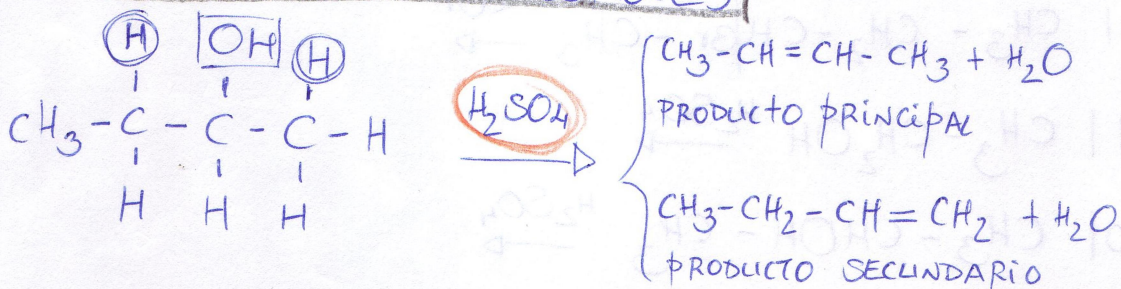 H OH H
CH3 - C - C - C - H
H H H
H2SO4
CH3-CH=CH-CH3 + H2O
PRODUCTO PRINCIPAL
CH3-CH2-CH=CH2 + H2O
PRODUCTO SECUNDARIO